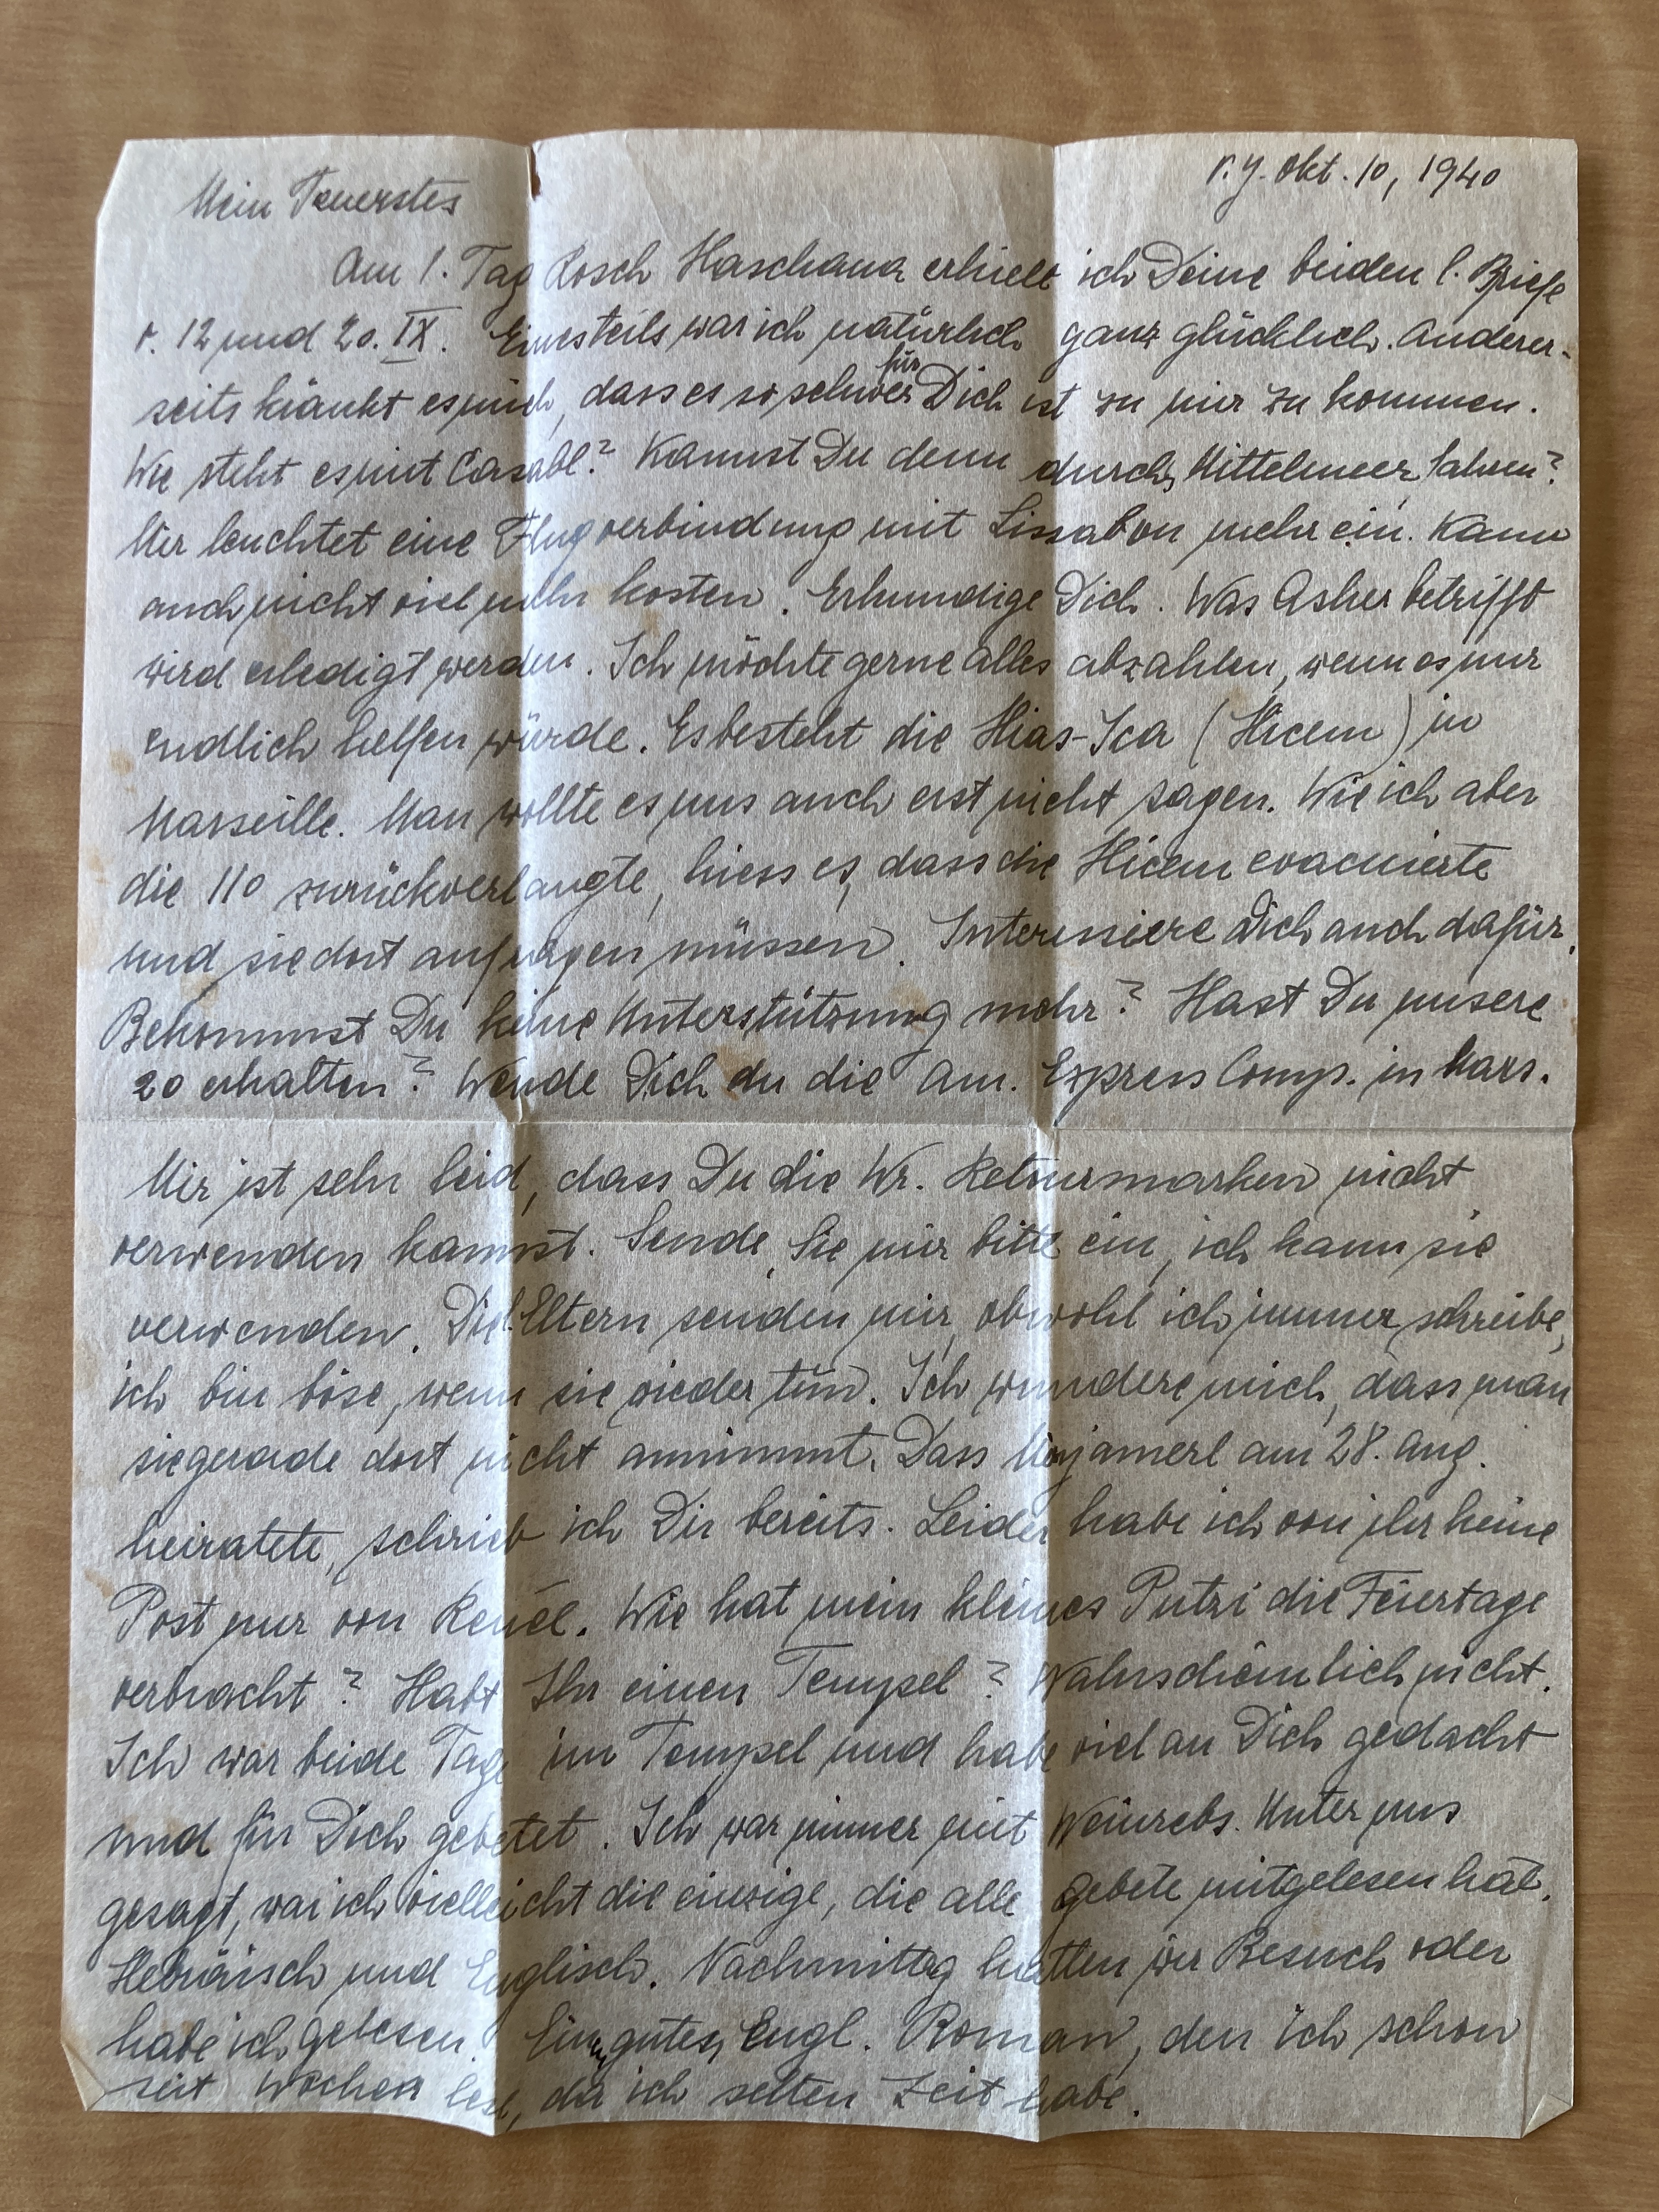 N.Y. Okt. 10, 1940
Mein Teuerstes
Am 1. Tag Rosch Haschana erhielt ich Deine beiden l. Briefe
v. 12 und 20. IX. Einesteils war ich natürlich ganz glücklich. Anderer-
seits kränkt es mich, dass es so schwer für Dich ist zu mir zu kommen.
Wie steht es mit Casabl.? Kannst Du denn durchs Mittelmeer fahren?
Mir leuchtet eine Flugverbindung mit Lissabon mehr ein. Kann
auch nicht viel mehr kosten. Erkundige Dich. Was Asher betrifft
wird erledigt werden. Ich möchte gerne alles abzahlen, wenn es nur
endlich helfen würde. Es besteht die Hias-Ica (Hicem) in
Marseille. Man wollte es uns auch erst nicht sagen. Wie ich aber
die 110 zurückverlangte, hiess es, dass die Hicem evacuierte
und sie dort anfragen müssen. Interessiere Dich auch dafür.
Bekommst Du keine Unterstützung mehr? Hast Du unsere
20 erhalten? Wende Dich an die Am. Express Comp. in Mars.
Mir ist sehr leid, dass Du die Wr. Retourmarken nicht
verwenden kannst. Sende Sie mir bitte ein, ich kann sie
verwenden. Die l. Eltern senden mir, obwohl ich immer schreibe,
ich bin böse, wenn sie wieder tun. Ich wundere mich, dass man
sie gerade dort nicht annimmt. Dass am 28. Aug.
heiratete, schrieb ich Dir bereits. Leider habe ich von ihr keine
Post nur von Reneé. Wie hat mein kleines Putzi die Feiertage
verbracht? Habt Ihr einen Tempel? Wahrscheinlich nicht.
Ich war beide Tage im Tempel und habe viel an Dich gedacht
und für Dich gebetet. Ich war immer mit Weinrebs. Unter uns
gesagt, war ich vielleicht die einzige, die alle Gebete mitgelesen hat.
Hebräisch und Englisch. Nachmittag hatten wir Besuch oder
habe ich gelesen. Einen guten Engl. Roman, den ich schon
seit Wochen lese, da ich selten Zeit habe.